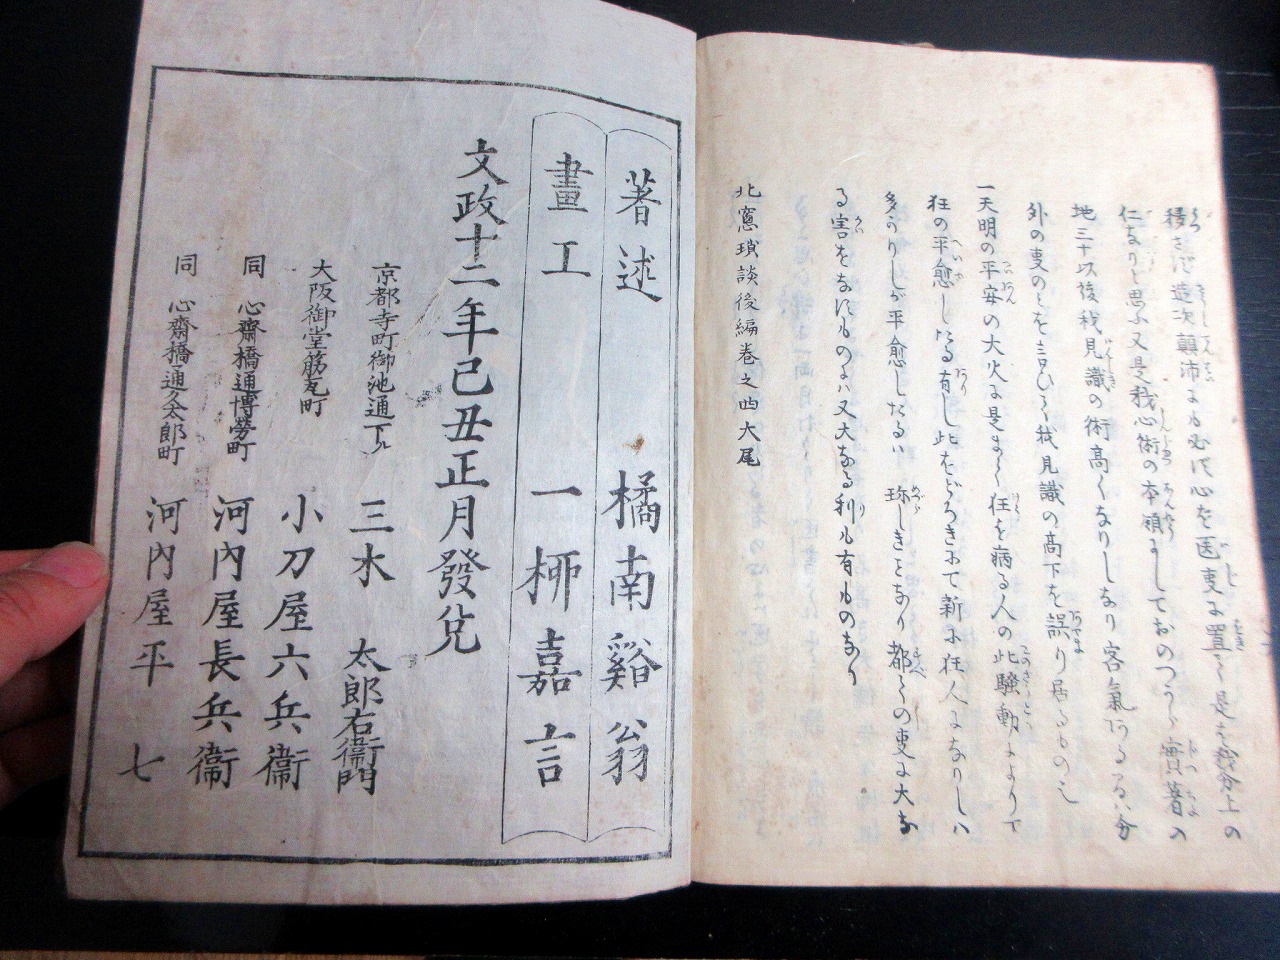 得ざれば造次顛沛にも必ず心を医事に置く是を我分上の
仁なりと思ふ又是我心術の本領にしておのづから實着の
地三十以後我見識の術高くなりしなり客氣ある
外の事のことを言ひて我見識の高下を誤り居るもの也
一天明の平安の大火に是まで狂を病る人の此騒動によりて
狂の平愈したる有し此をどろきにて新に狂人になりしハ
多かりしが平愈したるハ珎しきことなり都ての事に大な
る害をなすものハ又大なる利も有ものなり
北窻瑣談後編巻之四大尾
著述 橘南谿翁
畫工 一栁嘉言
文政十二年己丑正月發兌
京都寺町御池通下ル 三木太郎右衞門
大阪御堂筋瓦町 小刀屋六兵衞
同 心齋橋通博勞町 河内屋長兵衞
同 心齋橋通久太郎町 河内屋平七